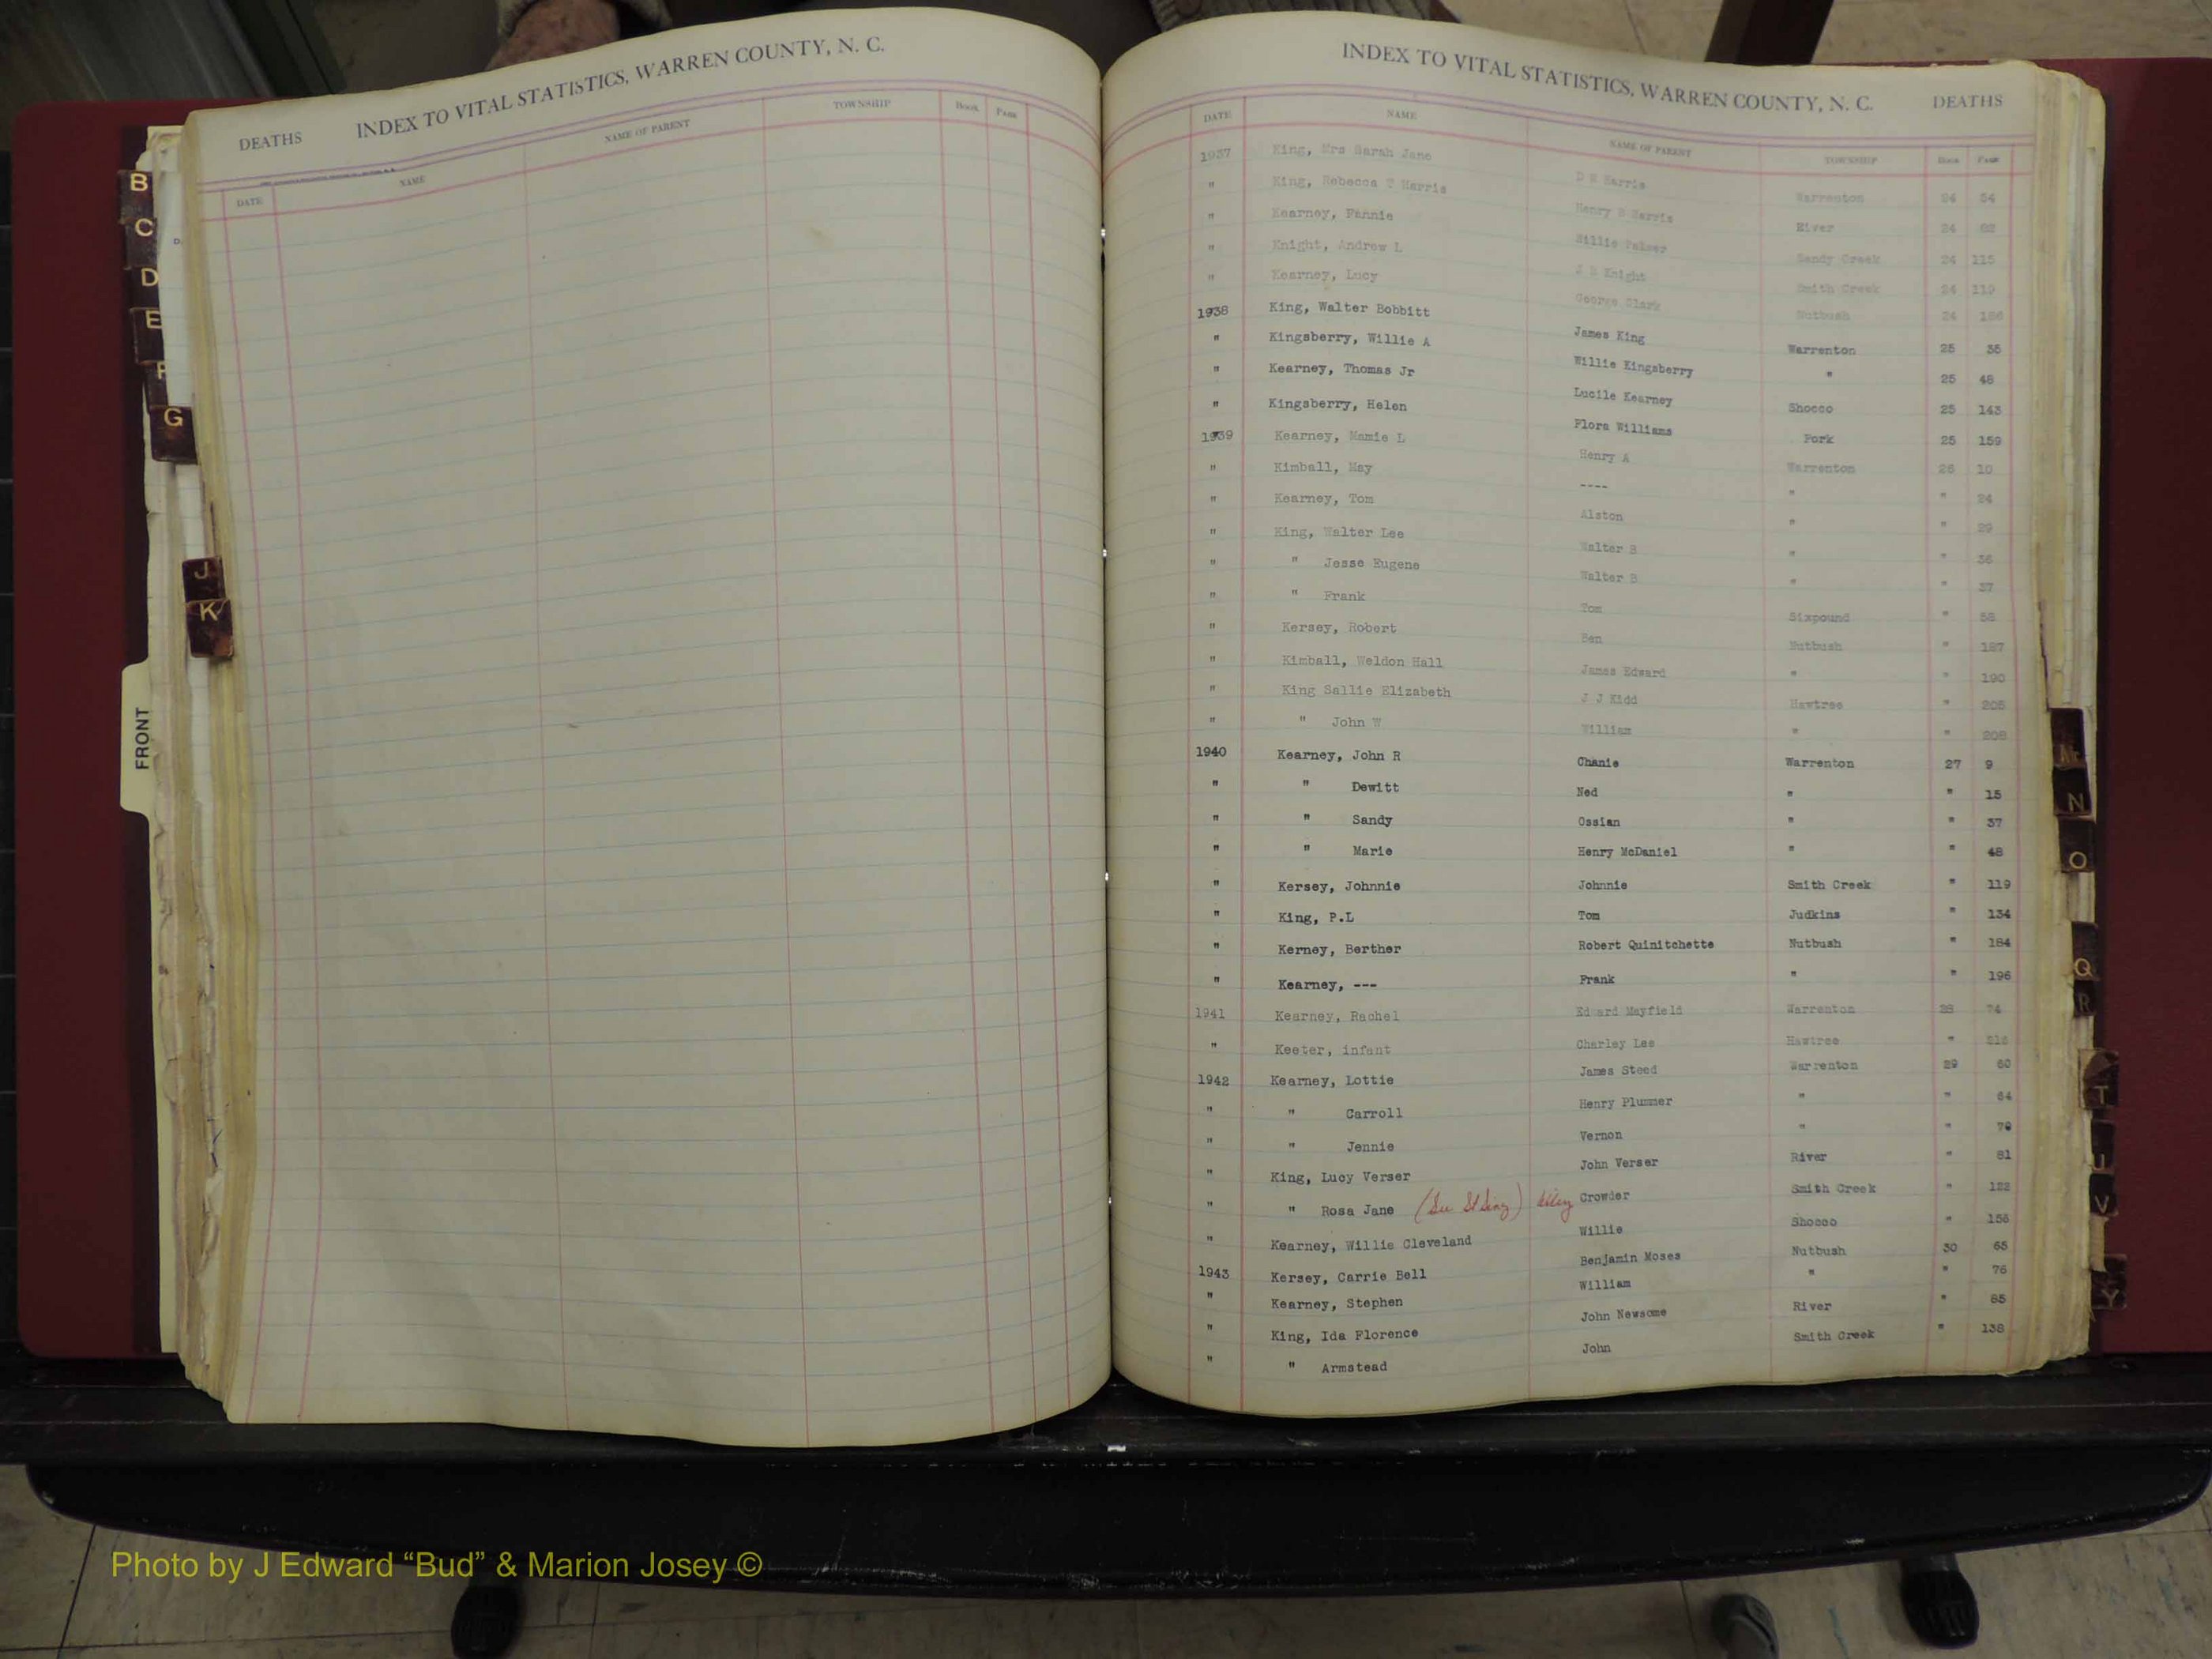 DEATHS INDEX TO VITAL STATISTICS, WARREN COUNTY, N. C.
DATE NAME NAME OF PARENT TOWNSHIP Book Page
INDEX TO VITAL STATISTICS, WARREN COUNTY, N. C. DEATHS
DATE NAME NAME OF PARENT TOWNSHIP Book Page
1937 King, Mrs Sarah Jane D H Harris Warrenton 24 54
" King, Rebecca T Harris Henry B Harris River 24 62
" Kearney, Fannie Willie Palmer Sandy Creek 24 115
" Knight, Andrew L Knight Smith Creek 24 119
" Kearney, Lucy George Clark Nutbush 24 186
1938 King, Walter Bobbitt James King Warrenton 25 35
" Kingsberry, Willie A Willie Kingsberry " 25 48
" Kearney, Thomas Jr Lucile Kearney Shocco 25 143
" Kingsberry, Helen Flora Williams Fork 25 159
1939 Kearney, Mamie L Henry A Warrenton 26 10
" Kimball, May ---- " " 24
" Kearney, Tom Alston " " 29
" King, Walter Lee Walter B " " 36
" " Jesse Eugene Walter B " " 37
" " Frank Tom Sixpound " 58
" Kersey, Robert Ben Nutbush " 187
" Kimball, Weldon Hall James Edward " " 190
" King Sallie Elizabeth J J Kidd Hawtree " 205
" " John W William " " 208
1940 Kearney, John R Chanie Warrenton 27 9
" " Dewitt Ned " " 15
" " Sandy Ossian " " 37
" " Marie Henry McDaniel " " 48
" Kersey, Johnnie Johnnie Smith Creek " 119
" King, P.L Tom Judkins " 134
" Kerney, Berther Robert Quinitchette Nutbush " 184
" Kearney, --- Frank " " 196
1941 Kearney, Rachel Edward Mayfield Warrenton 28 74
" Keeter, infant Charley Lee Hawtree " 216
1942 Kearney, Lottie James Steed Warrenton 29 60
" " Carroll Henry Plummer " " 64
" " Jennie Vernon " " 79
" King, Lucy Verser John Verser River " 81
" " Rosa Jane (See St Sing) Crowder Smith Creek " 122
" Kearney, Willie Cleveland Willie Shocco " 156
1943 Kersey, Carrie Bell Benjamin Moses Nutbush 30 65
" Kearney, Stephen William " " 76
" King, Ida Florence John Newsome River " 85
" " Armstead John Smith Creek " 138
B
C
D
E
F
G
J
K
FRONT
N
O
Q
R
T
U
V
Y
Photo by J Edward “Bud” & Marion Josey ©